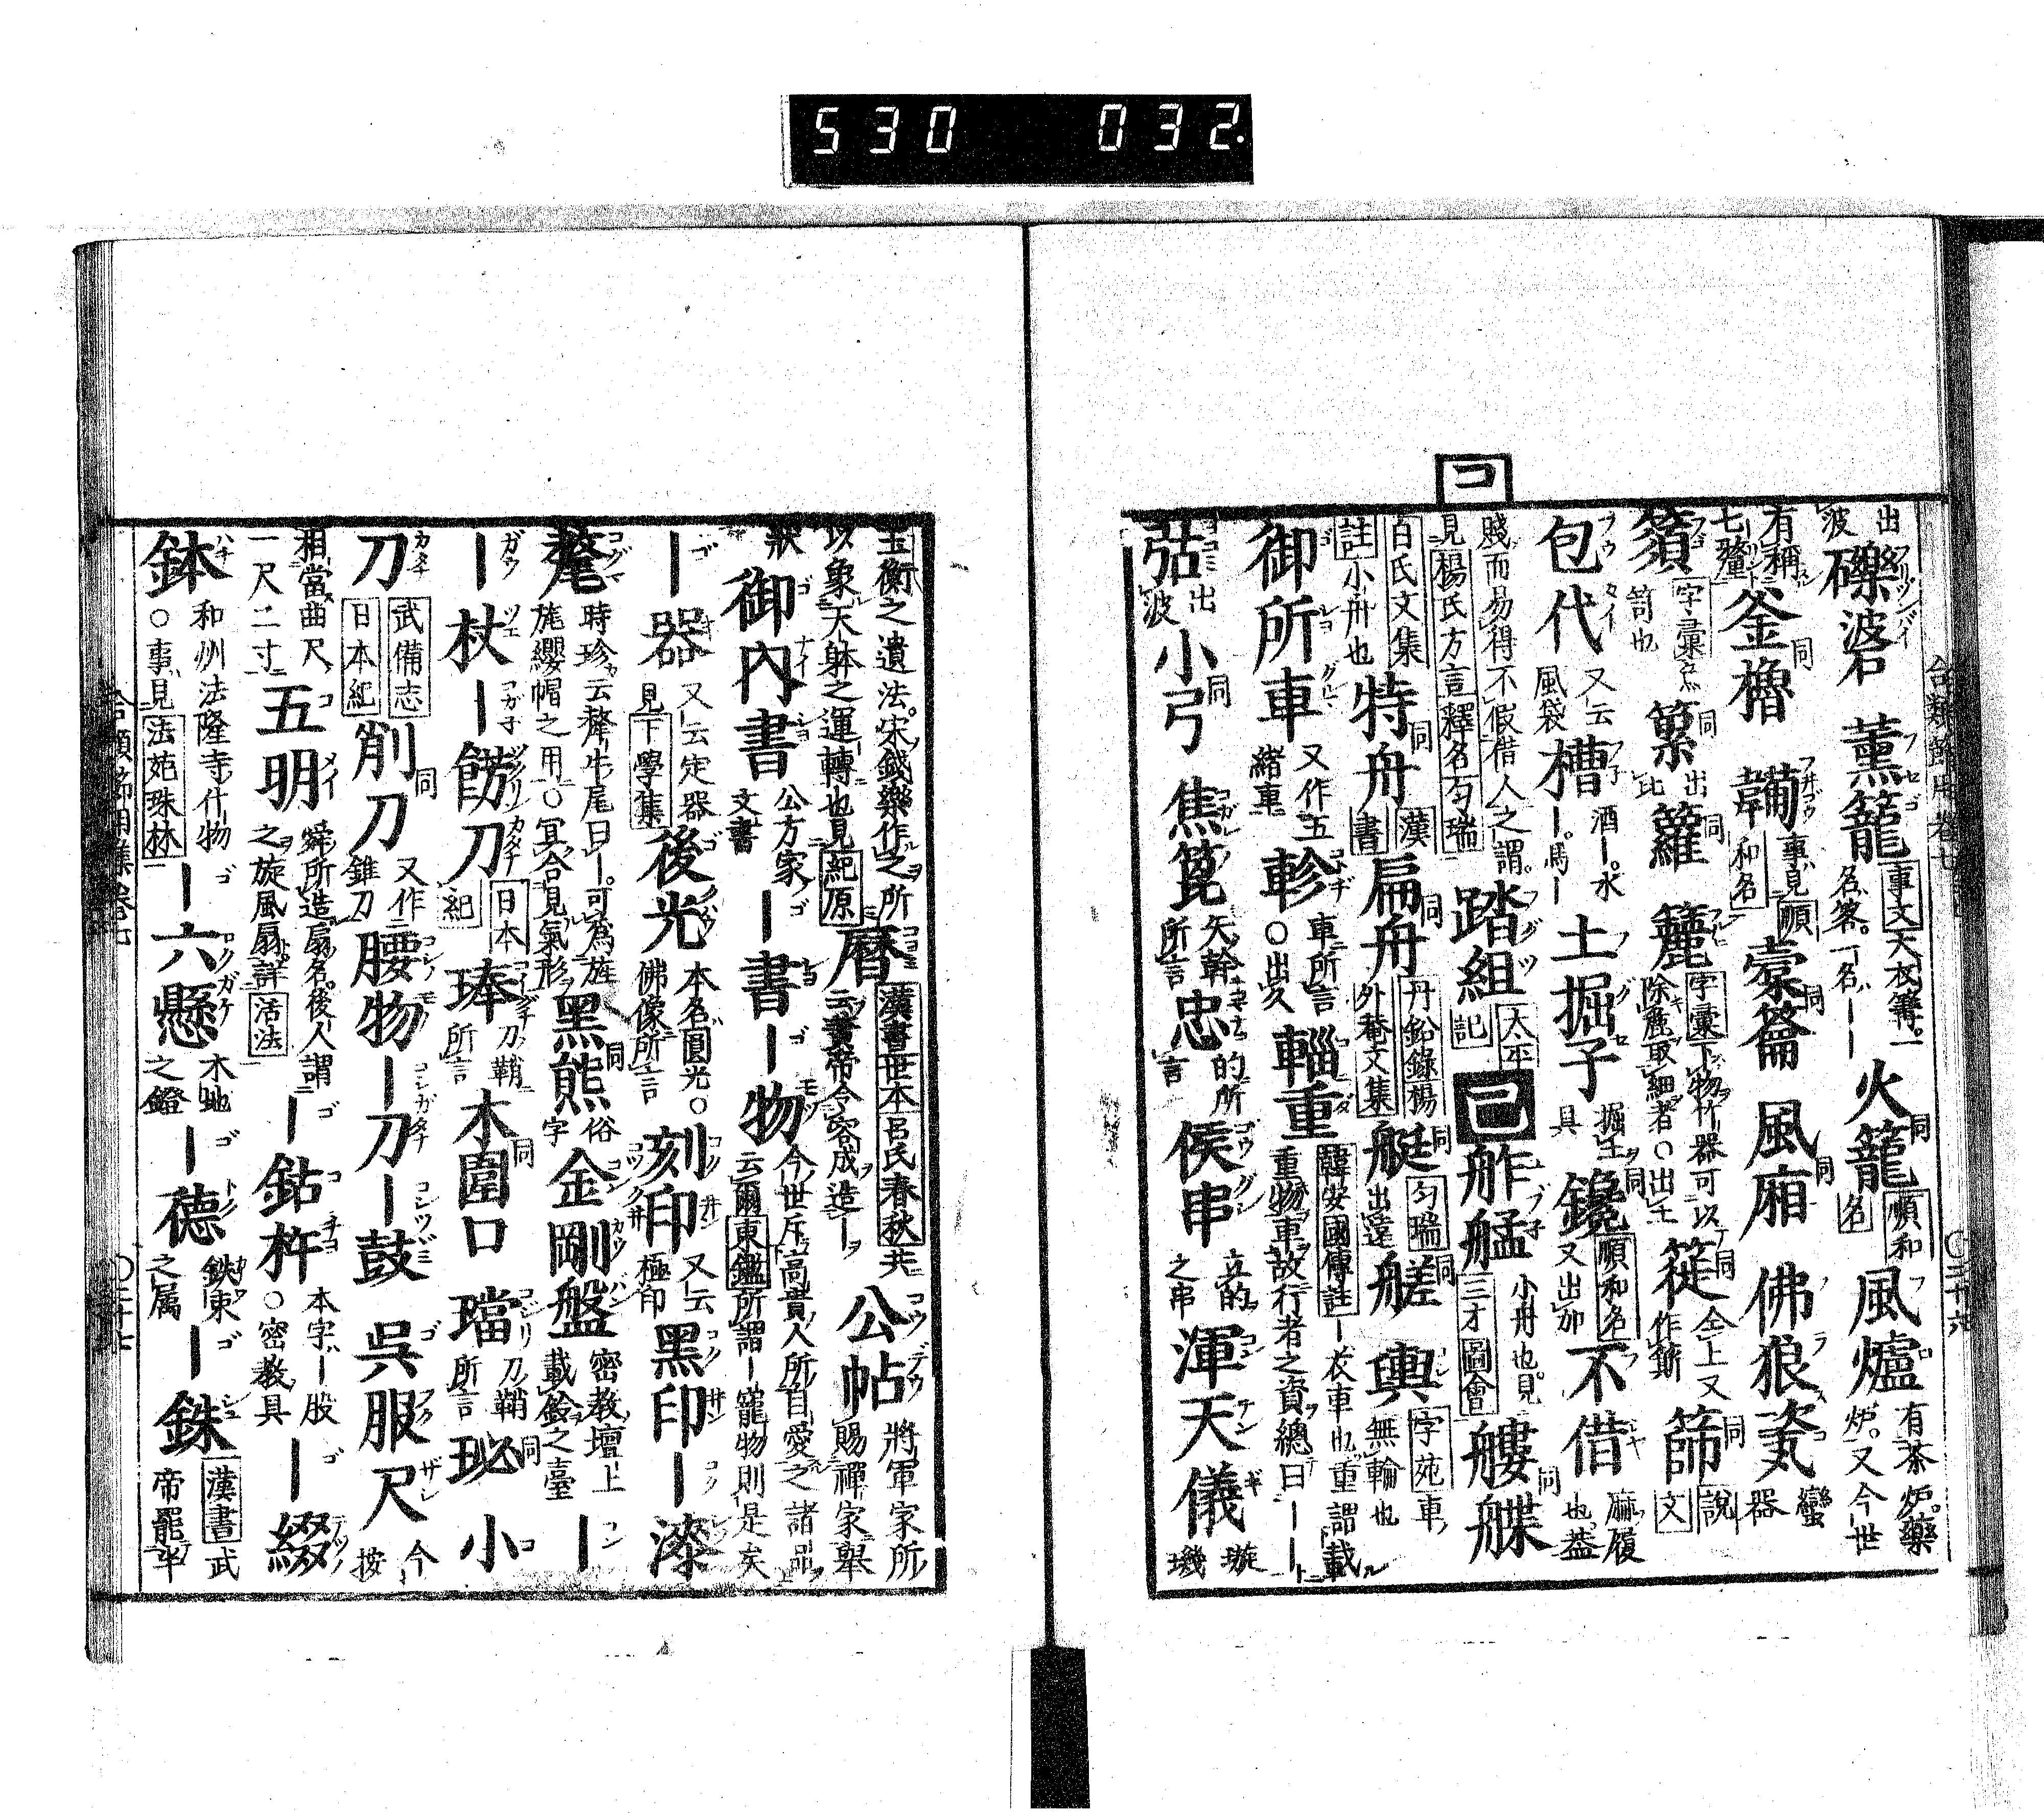 530 032.
コ
合類節用集卷七 〇三十六
出波 礫磇 薰籠 事文大衣篝一名篝一名｜｜ 火籠 同順和名 風爐 有茶炉藥炉又今世
有稱七釐 釡櫓 同 鞴 事見順和名 橐籥 同 風廂 同 佛狼瓷 蠻器
籅 字彙 笥也 籮 同 簏 字彙下物竹器可以除麁取細者〇出土 簁 同 仝上又作篩 篩 同說文
包代 又云風袋 槽 酒｜水｜馬｜ 土掘子 掘土具 鑱 同順和名又出加 不借 麻履也蓋
賤而易得不假借人之謂 踏組 太平記 己 舴艋 小舟也見三才圖會 艛艓 同
見楊氏方言釋名匀瑞
白氏文集註小舟也 特舟 同漢書 扁舟 同丹鉛錄楊外菴文集 艇 同匀瑞出遠 艖 同 輿 字苑車無輪也
御所車 又作五緒車 軫 車所言〇出久 輜重 韓安國傳註｜衣車也重謂載重物車故行者之資總曰｜｜
弶 出波 小弓 同 焦箆 矢幹所言 忠 的所言 侯串 立的之串 渾天儀 璇璣
玉衡之遺法宋錢樂作之所以象天躰之運轉也見紀原 曆 漢書世本呂氏春秋共云黄帝令容成造｜ 公帖 將軍家所賜禪家舉
狀 御內書 公方家文書 ｜書｜物 今世斥高貴人所自愛之諸品云爾東鑑所謂｜寵物則是矣
｜器 又云定器見下學集 後光 本名圓光〇佛像所言 刻印 又云極印 黑印｜漆
氂 時珍云犛牛尾曰｜可為旌旄纓帽之用〇冥合見氣形 黑熊 同俗字 金剛盤 密教壇上載鈴之臺 ｜
｜杖｜餝刀 日本紀 琫 刀鞘所言 木圍口 同 璫 刀鞘所言 珌 同 小
刀 武備志日本紀 削刀 同又作錐刀 腰物｜刀｜鼓 呉服尺 今按
相當曲尺一尺二寸 五明 舜所造扇名後人謂之旋風扇詳活法 ｜鈷杵 本字｜股〇密教具 ｜綴
鉢 和州法隆寺什物〇事見法苑珠林 ｜六懸 木地之鐙 ｜德 鉄束之属 ｜銖 漢書武帝罷半
合類節用集卷七 〇三十七